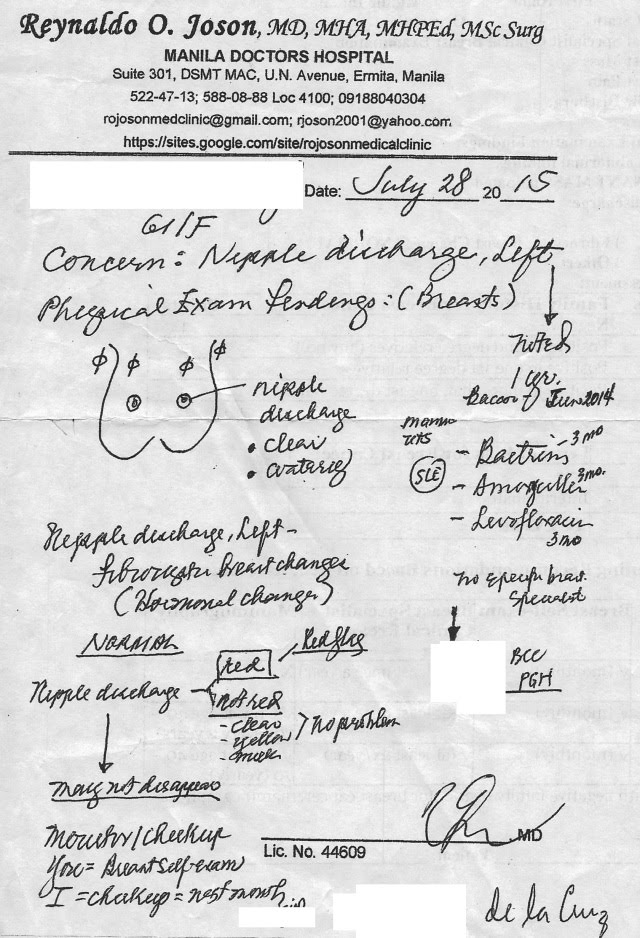 Reynaldo O. Joson, MD, MHA, MHPEd, MSc Surg
MANILA DOCTORS HOSPITAL
Suite 301, DSMT MAC, U.N. Avenue, Ermita, Manila
522-47-13; 588-08-88 Loc 4100; 09188040304
rojosonmedclinic@gmail.com; rjoson2001@yahoo.com
https://sites.google.com/site/rojosonmedicalclinic
Date: July 28 2015
61/F
Concern: Nipple discharge, Left
Physical Exam Findings: (Breasts)
noted
1 yr.
Bacoor June 2014
φ φ φ φ
nipple
discharge
• clear
mammo
UTS
SLE
- Bactrim 3 mo
- Amoxicillin 3 mo.
- Levofloxacin
3 mo
Nipple discharge, Left -
fibrocystic breast changes
(Hormonal changes)
no specific breast
specialist
NORMAL
red Red flag
BCC
PGH
Nipple discharge
not red
- clear
- yellow
- milk
no problem
may not disappear
Monitor/checkup
You = Breast self exam
I = checkup = next month
MD
Lic. No. 44609
de la Cruz